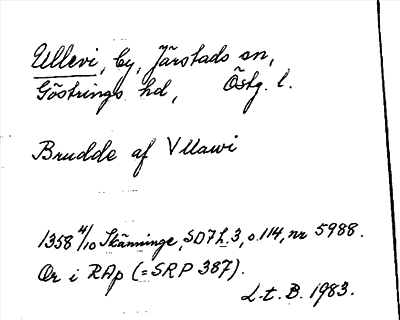 Ullevi, by, Järstads sn,
Göstrings hd, Östg. l.
Brudde af Vllawi
1358 4/10 Skänninge, SD7:3, s. 114, nr 5988.
Or i RAp (= SRP 387).
L.t. B. 1983.